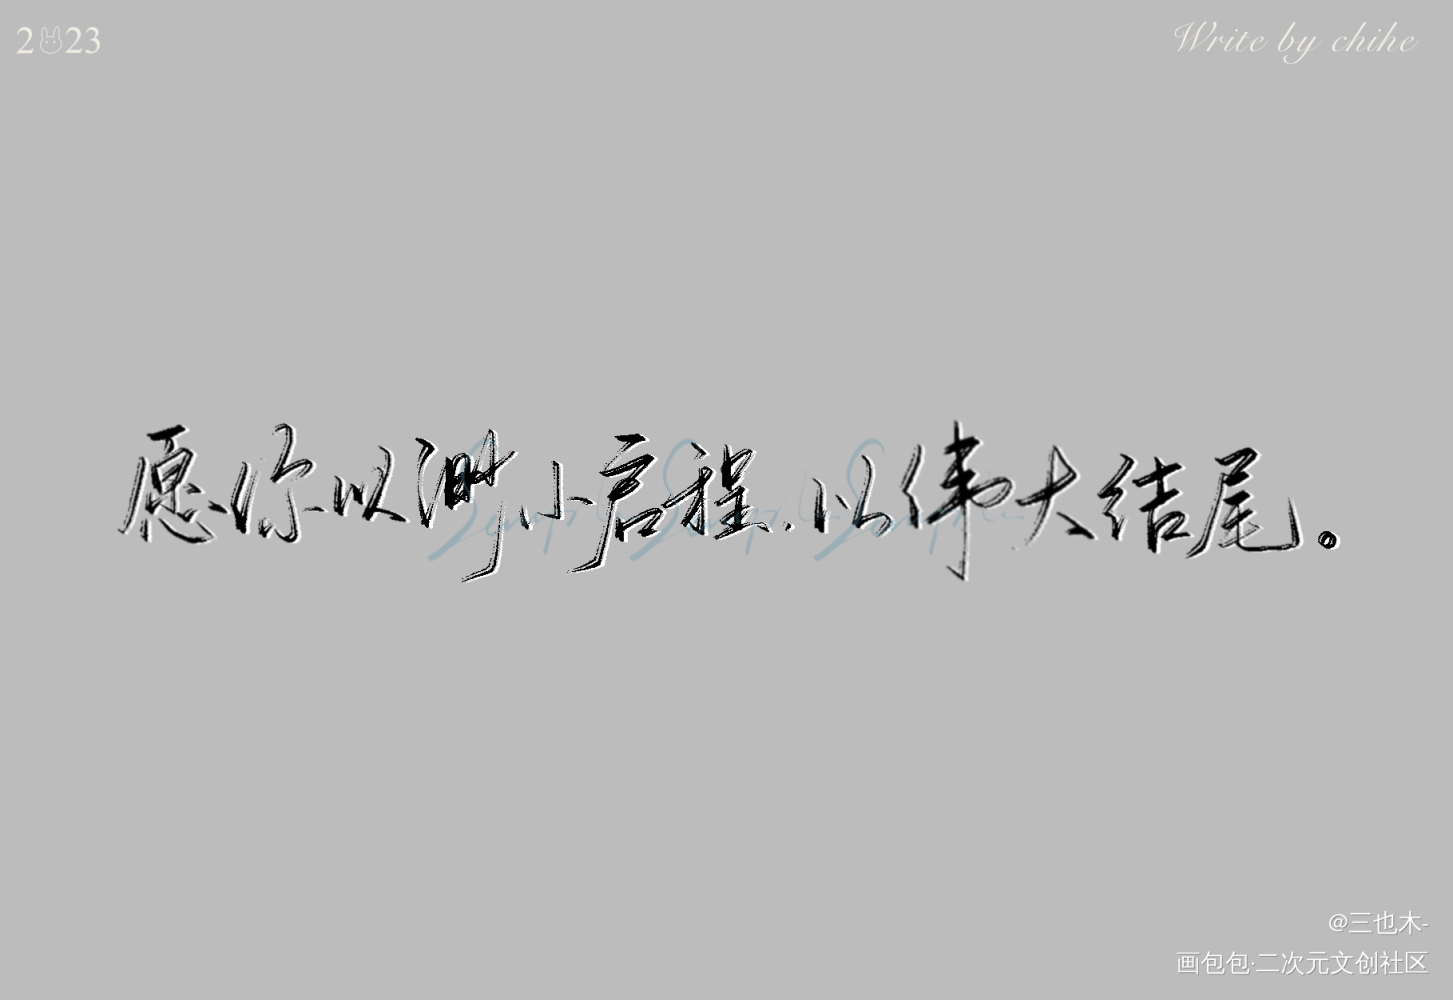 2023
Write by chihe
愿你以渺小启程，以伟大结尾。
@三也木-
画包包·二次元文创社区